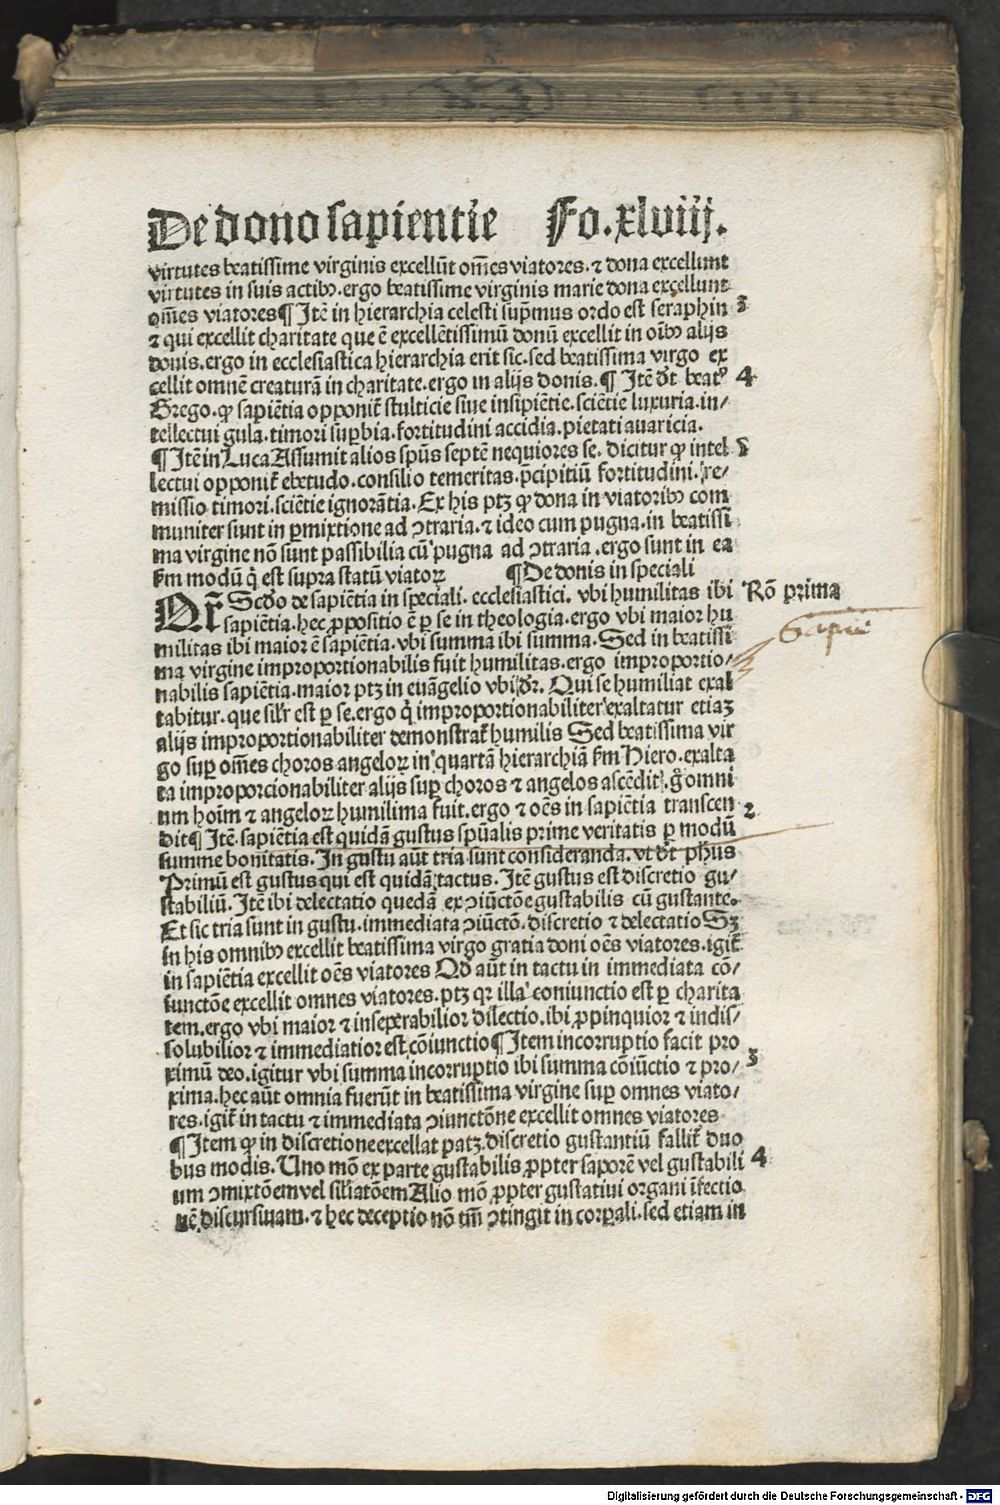 De dono sapientie Fo.xlviij.
virtutes beatissime virginis excellūt om̄es viatores. ⁊ dona excellunt
virtutes in suis actibꝰ. ergo beatissime virginis marie dona excellunt
om̄es viatores ¶ Itē in hierarchia celesti sup̄mus ordo est seraphin 3
⁊ qui excellit charitate que ē excellētissimū donū excellit in oībꝰ alijs
donis. ergo in ecclesiastica hierarchia erit sic. sed beatissima virgo ex
cellit omnē creaturā in charitate. ergo in alijs donis. ¶ Itē dr̄t beatꝰ 4
Grego. ꝙ sapiētia opponit̄ stulticie siue insipiētie. sciētie luxuria. in/
tellectui gula. timori suꝑbia. fortitudini accidia. pietati auaricia.
¶ Itē in Luca Assumit alios spūs septē nequiores se. dicitur ꝙ intel 5
lectui opponit̄ ebetudo. consilio temeritas. p̄cipitiū fortitudini. re/
missio timori. sciētie ignorātia. Ex his ptꝫ ꝙ dona in viatoribꝰ com
muniter sunt in ꝑmixtione ad ꝯtraria. ⁊ ideo cum pugna. in beatissi
ma virgine nō sunt passibilia cū pugna ad ꝯtraria. ergo sunt in ea
ẜm modū q̄ est supra statū viatoꝝ ¶ De donis in speciali
Qr̄ Scd̄o de sapiētia in speciali. ecclesiastici. vbi humilitas ibi Rō prima
sapiētia. hec ꝓpositio ē ꝑ se in theologia. ergo vbi maior hu Sapiē
militas ibi maior ē sapiētia. vbi summa ibi summa. Sed in beatissi
ma virgine improportionabilis fuit humilitas. ergo improportio/
nabilis sapiētia. maior ptꝫ in euāgelio vbi dr̄. Qui se humiliat exal
tabitur. que sil̄r est ꝑ se. ergo q̄ improportionabiliter exaltatur etiaꝫ
alijs improportionabiliter demonstrat̄ humilis Sed beatissima vir
go suꝑ om̄es choros angeloꝝ in quartā hierarchiā ẜm Hiero. exalta
ta improporcionabiliter alijs suꝑ choros ⁊ angelos ascēdit. g̊ omni
um hoīm ⁊ angeloꝝ humilima fuit. ergo ⁊ oēs in sapiētia transcen 2
dit ¶ Itē. sapiētia est quidā gustus spūalis prime veritatis ꝑ modū
summe bonitatis. In gustu aūt tria sunt consideranda. vt dt̄ ph̄us
Primū est gustus qui est quidā tactus. Itē gustus est discretio gu/
stabiliū. Itē ibi delectatio quedā ex ꝯiūctōe gustabilis cū gustante.
Et sic tria sunt in gustu. immediata ꝯiūctō. discretio ⁊ delectatio Sꝫ
in his omnibꝰ excellit beatissima virgo gratia doni oēs viatores. igit̄
in sapiētia excellit oēs viatores Qd̄ aūt in tactu in immediata cō/
iunctōe excellit omnes viatores. ptꝫ qꝛ illa coniunctio est ꝑ charita
tem. ergo vbi maior ⁊ inseperabilior dilectio. ibi ꝓpinquior ⁊ indis/
solubilior ⁊ immediatior est cōiunctio ¶ Item incorruptio facit pro 3
ximū deo. igitur vbi summa incorruptio ibi summa cōiūctio ⁊ pro/
xima. hec aūt omnia fuerūt in beatissima virgine suꝑ omnes viato/
res. igit̄ in tactu ⁊ immediata ꝯiunctōne excellit omnes viatores
¶ Item ꝙ in discretione excellat patꝫ. discretio gustantiū fallit̄ duo
bus modis. Uno mō ex parte gustabilis ꝓpter saporē vel gustabili 4
um ꝯmixtōem vel sil̄iatōem Alio mō ꝓpter gustatiui organi īfectio
nē discursiuam. ⁊ hec deceptio nō tm̄ ꝯtingit in corꝑali. sed etiam in
Digitalisierung gefördert durch die Deutsche Forschungsgemeinschaft - DFG